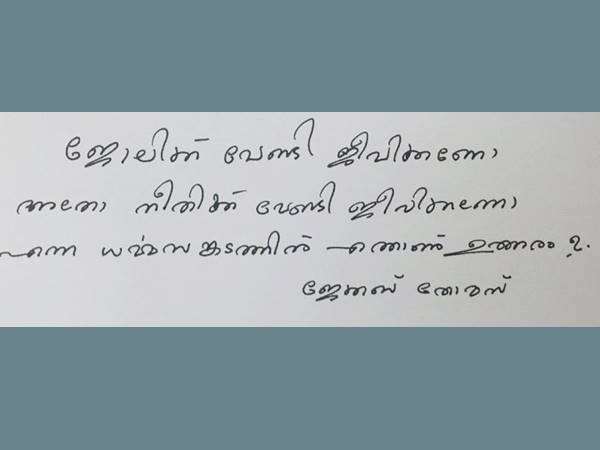 ജോലിക്ക് വേണ്ടി ജീവിക്കണോ
അതോ നീതിക്ക് വേണ്ടി ജീവിക്കണോ
എന്ന ധർമ്മസങ്കടത്തിൽ എന്താണ് ഉത്തരം ?.
ജേക്കബ് തോമസ്